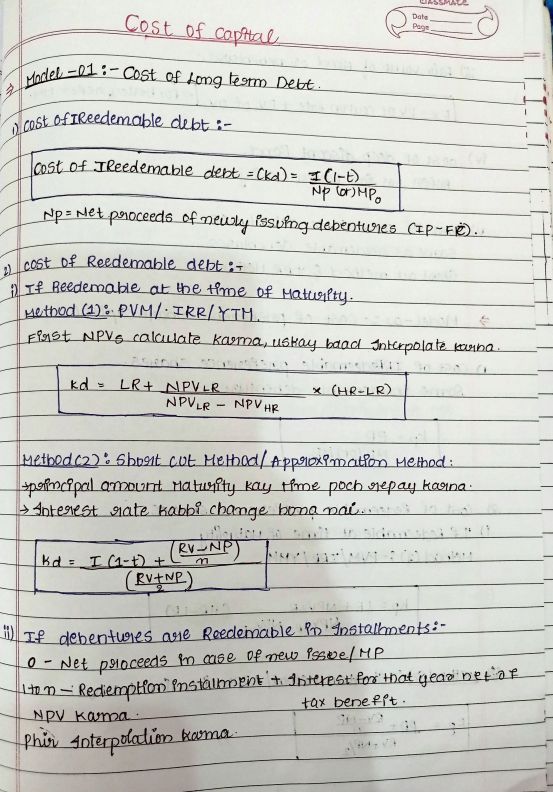 CLASSMATE
Date
Page
Cost of capital
⇒ Model -01 :- Cost of Long term Debt.
1) Cost of IReedemable debt :-
Cost of IReedemable debt = (Kd) = I(1-t) / Np (or) MP₀
Np = Net proceeds of newly issuing debentures (IP-FC).
2) Cost of Reedemable debt :-
i) If Reedemable at the time of Maturity.
Method (1): PVM/. IRR/ YTM
First NPVs calculate karna, uskay baad Interpolate karna.
Kd = LR + NPV LR / NPV LR - NPV HR × (HR-LR)
Method (2): Short cut Method/ Approximation Method:
→ principal amount Maturity kay time poch repay karna.
→ Interest rate kabbi change hona nai.
Kd = I (1-t) + (RV-NP / n) / (RV+NP / 2)
ii) If debentures are Reedemable in Installments:-
0 - Net proceeds in case of new issue/MP
1 to n - Redemption instalment + Interest for that year net of
tax benefit.
NPV Karna.
Phir Interpolation karna.